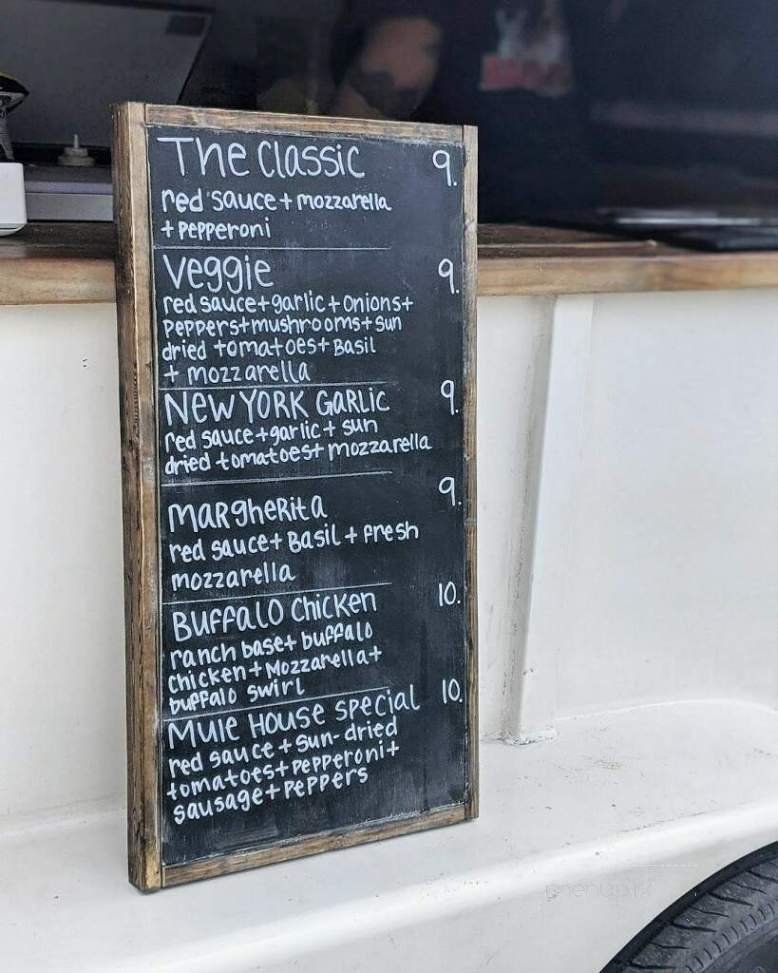 The Classic 9.
red sauce + mozzarella
+ pepperoni
Veggie 9.
red sauce + garlic + onions +
peppers + mushrooms + sun
dried tomatoes + Basil
+ mozzarella
New York Garlic 9.
red sauce + garlic + sun
dried tomatoes + mozzarella
Margherita 9.
red sauce + Basil + fresh
mozzarella
Buffalo Chicken 10.
ranch base + buffalo
chicken + Mozzarella +
buffalo swirl
Mule House special 10.
red sauce + sun-dried
tomatoes + pepperoni +
sausage + peppers